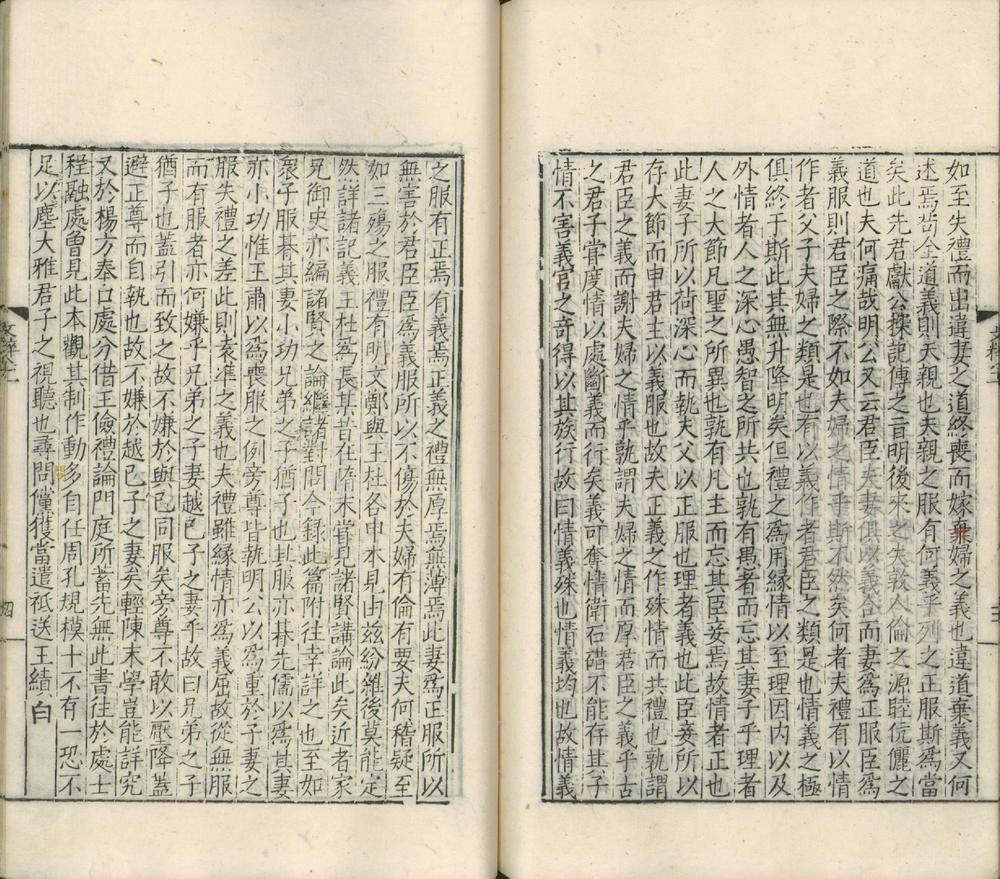 如至失禮而出違妻之道終喪而嫁棄婦之義也違道棄義又何
述焉苟全道義則天親也夫親之服有何義乎列之正服斯爲當
矣此先君獻公探記傳之旨明後來之失敦人倫之源睦伉儷之
道也夫何痛哉明公又云君臣夫妻俱以義合而妻爲正服臣爲
義服則君臣之際不如夫婦之情乎斯不然矣何者夫禮有以情
作者父子夫婦之類是也有以義作者君臣之類是也情義之極
俱終于斯此其無升降明矣但禮之爲用緣情以至理因內以及
外情者人之深心愚智之所共也孰有愚者而忘其妻子乎理者
人之大節凡聖之所異也孰有凡主而忘其臣妾焉故情者正也
此妻子所以荷深心而執夫父以正服也理者義也此臣妾所以
存大節而申君主以義服也故夫正義之作殊情而共禮也孰謂
君臣之義而謝夫婦之情乎孰謂夫婦之情而厚君臣之義乎古
之君子甞度情以處斷義而行矣義可奪情衛石碏不能存其子
情不害義宮之奇得以其族行故曰情義殊也情義均也故情義
之服有正焉有義焉正義之禮無厚焉無薄焉此妻爲正服所以
無害於君臣臣爲義服所以不傷於夫婦有倫有要夫何稽疑至
如三殤之服禮有明文鄭與王杜各申本見由兹紛維後莫能定
然詳諸記義王杜爲長某昔在隋末甞見諸賢講論此矣近者家
兄御史亦編諸賢之論繼諸對問今録此篇附往幸詳之也至如
衆子服朞其妻小功兄弟之子猶子也其服亦朞先儒以爲其妻
亦小功惟王肅以爲喪服之例旁尊皆執明公以爲重於子妻之
服失禮之差此則袁準之義也夫禮雖緣情亦爲義屈故從無服
而有服者亦何嫌乎兄弟之子妻越己子之妻乎故曰兄弟之子
猶子也蓋引而致之故不嫌於與己同服矣旁尊不敢以壓降蓋
避正尊而自執也故不嫌於越己子之妻矣輕陳末學豈能詳究
又於楊方奉口處分借王儉禮論門庭所蓄先無此書往於處士
程融處曾見此本觀其制作動多自任周孔規模十不有一恐不
足以塵大雅君子之視聽也尋問儻獲當遣祗送王績白